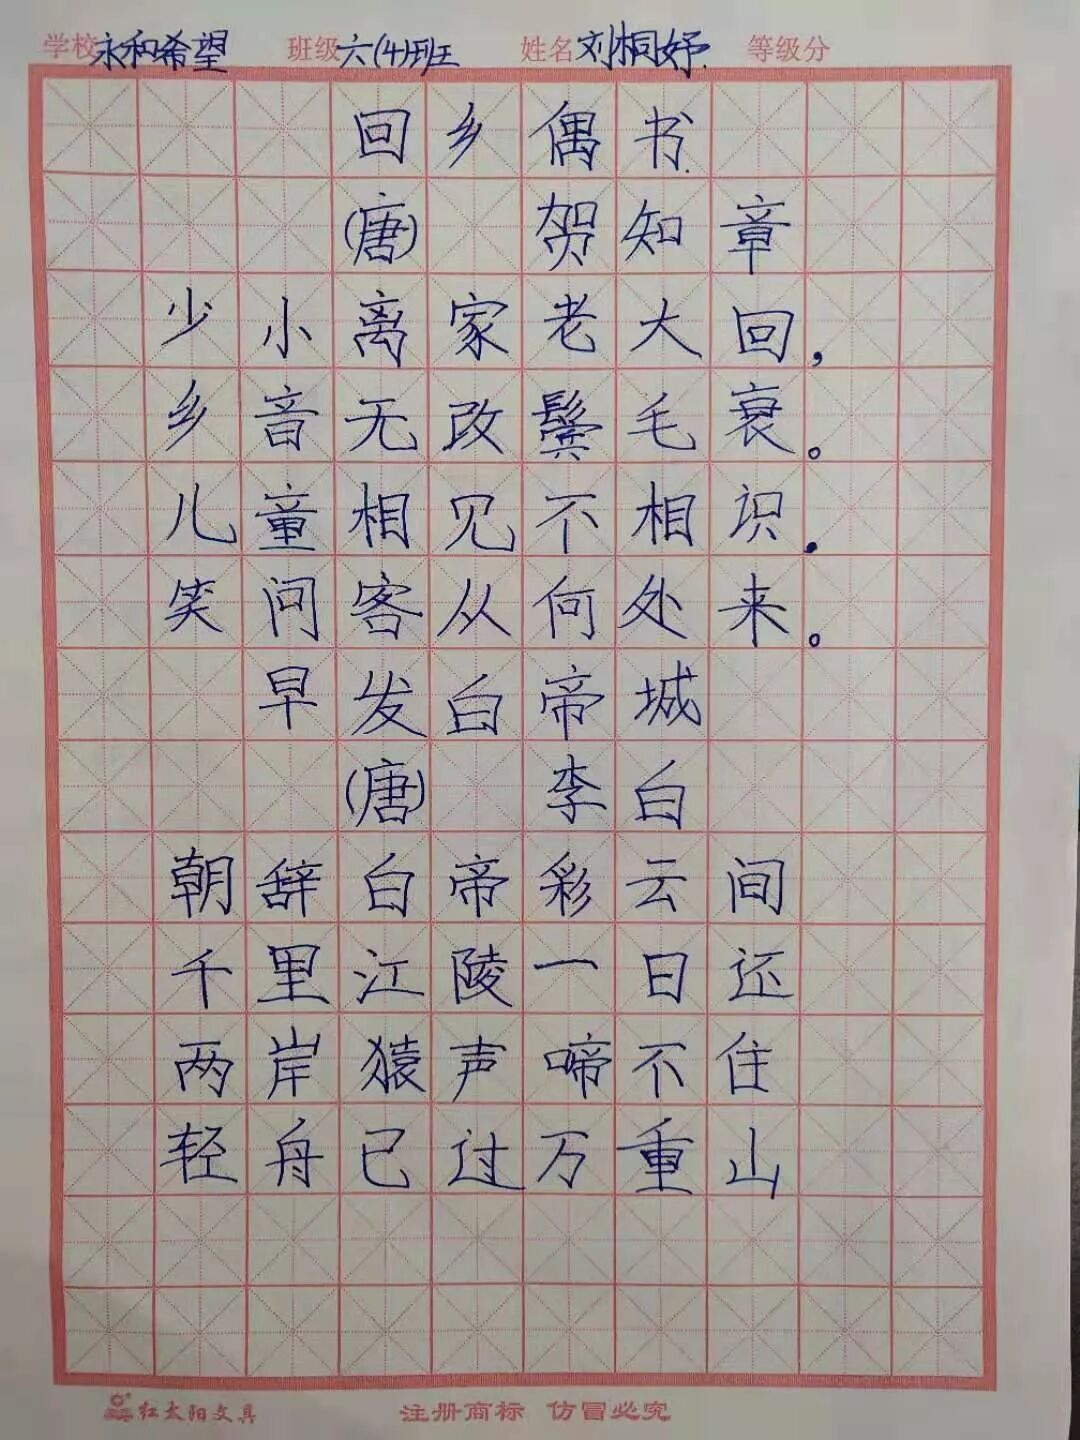 学校永和希望 班级六(4)班 姓名刘桐妤. 等级分
回乡偶书.
(唐) 贺知章
少小离家老大回,
乡音无改鬓毛衰。
儿童相见不相识.
笑问客从何处来。
早发白帝城
(唐) 李白
朝辞白帝彩云间
千里江陵一日还
两岸猿声啼不住
轻舟已过万重山
红太阳文具 注册商标 仿冒必究